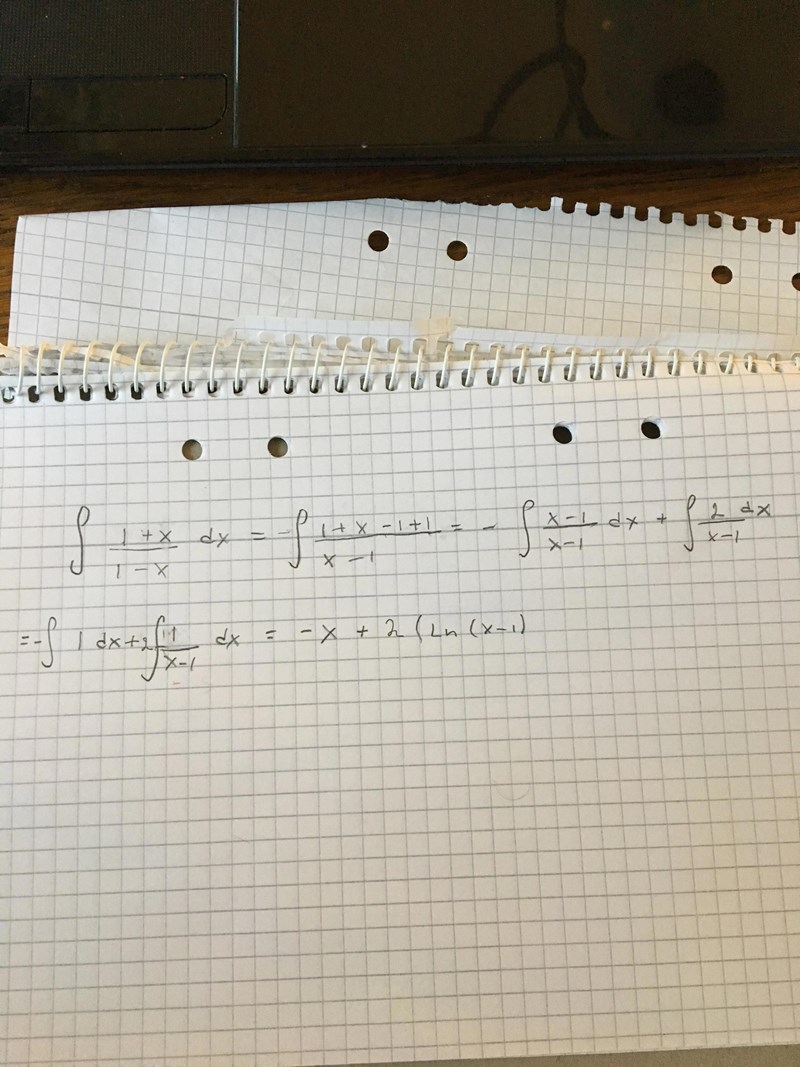 ∫ (1+x)/(1-x) dx = -∫ (1+x-1+1)/(x-1) = - ∫ (x-1)/(x-1) dx + ∫ 2/(x-1) dx
=-∫ 1 dx+2∫ 1/(x-1) dx = -x + 2 (Ln (x-1)